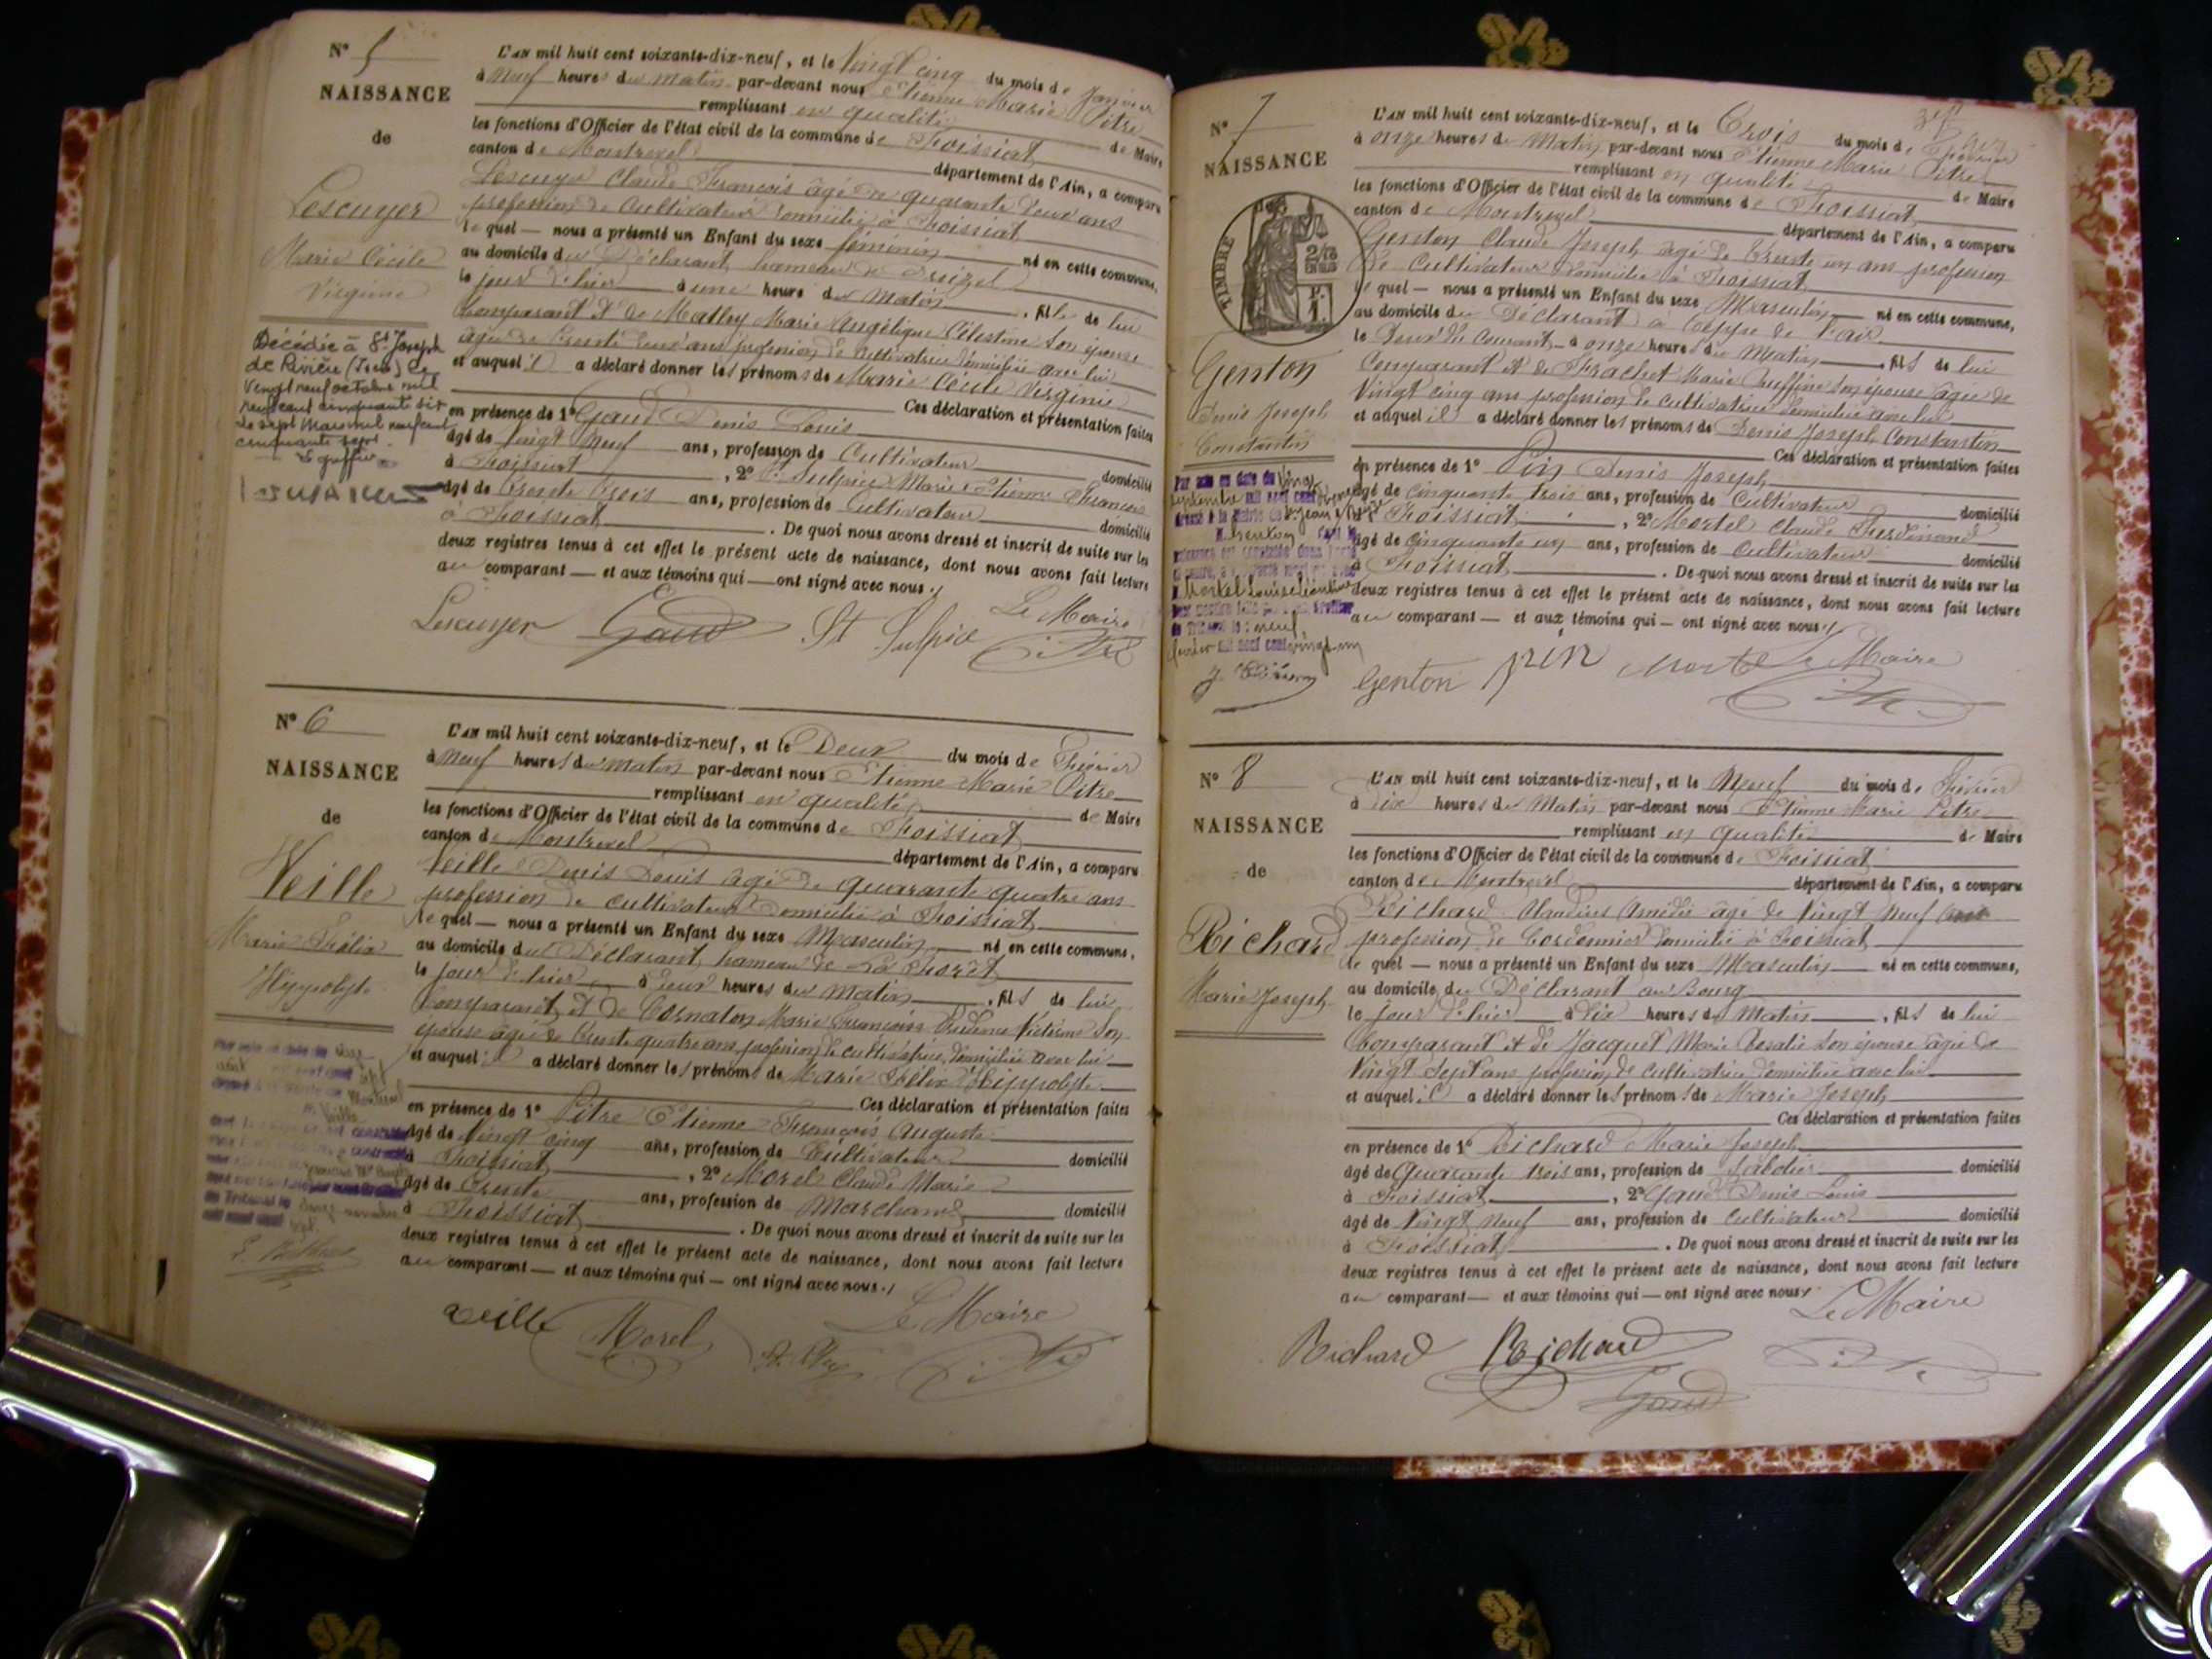 N° 5
NAISSANCE
de
Lescuyer
Marie Cécile
Virginie
Décédée à St Joseph
de Rivière (Isère) le
vingt neuf octobre mil
neuf cent cinquante six
Le sept Mars mil neuf cent
cinquante sept.
Le greffier
L'AN mil huit cent soixante-dix-neuf, et le Vingt cinq du mois de Janvier
à Neuf heures du matin par-devant nous Etienne Marie Pitre
remplissant en qualité de Maire
les fonctions d'Officier de l'état civil de la commune de Foissiat
canton de Montrevel département de l'Ain, a comparu
Lescuyer Claude François âgé de quarante deux ans
profession de Cultivateur domicilié à Foissiat
lequel — nous a présenté un Enfant du sexe féminin né en cette commune,
au domicile du Déclarant hameau de
le jour d'hier à une heure du Matin , fille de lui
Comparant et de Marie Angélique Célestine son épouse
âgée de trente deux ans profession de cultivatrice domiciliée avec lui
et auquel il a déclaré donner les prénoms de Marie Cécile Virginie
Ces déclaration et présentation faites
en présence de 1° Gaud Denis Louis
âgé de Vingt Neuf ans, profession de Cultivateur domicilié
à Foissiat , 2° St Sulpice Marie Etienne François
âgé de trente trois ans, profession de Cultivateur domicilié
à Foissiat . De quoi nous avons dressé et inscrit de suite sur les
deux registres tenus à cet effet le présent acte de naissance, dont nous avons fait lecture
au comparant — et aux témoins qui — ont signé avec nous./
Lescuyer Gaud St Sulpice Le Maire
Pitre
N° 6
NAISSANCE
de
Veille
Marie Félix
Hyppolyte
L'AN mil huit cent soixante-dix-neuf, et le Deux du mois de Février
à Neuf heures du matin par-devant nous Etienne Marie Pitre
remplissant en qualité de Maire
les fonctions d'Officier de l'état civil de la commune de Foissiat
canton de Montrevel département de l'Ain, a comparu
Veille Denis Louis âgé de quarante quatre ans
profession de cultivateur domicilié à Foissiat
lequel — nous a présenté un Enfant du sexe Masculin né en cette commune,
au domicile du Déclarant hameau de La Forêt
le jour d'hier à deux heures du matin , fils de lui
Comparant et de Cornaton Marie Françoise Prudence Victorine son
épouse âgée de trente quatre ans profession de cultivatrice domiciliée avec lui
et auquel il a déclaré donner les prénoms de Marie Félix Hippolyte
Ces déclaration et présentation faites
en présence de 1° Pitre Etienne François Auguste
âgé de Vingt cinq ans, profession de Cultivateur domicilié
à Foissiat , 2° Morel Claude Marie
âgé de trente ans, profession de Marchand domicilié
à Foissiat . De quoi nous avons dressé et inscrit de suite sur les
deux registres tenus à cet effet le présent acte de naissance, dont nous avons fait lecture
au comparant — et aux témoins qui — ont signé avec nous./
veille Morel Le Maire
N° 7
NAISSANCE
TIMBRE
Genton
Denis Joseph
Constantin
L'AN mil huit cent soixante-dix-neuf, et le Trois du mois de Février
à onze heures du Matin par-devant nous Etienne Marie Pitre
remplissant en qualité de Maire
les fonctions d'Officier de l'état civil de la commune de Foissiat
canton de Montrevel département de l'Ain, a comparu
Genton Claude Joseph âgé de trente un ans profession
de Cultivateur domicilié à Foissiat
lequel — nous a présenté un Enfant du sexe Masculin né en cette commune,
au domicile du Déclarant à
le Deux du courant à onze heures du Matin , fils de lui
Comparant et de Frachet Marie son épouse âgée de
Vingt cinq ans profession de cultivatrice domiciliée avec lui
et auquel il a déclaré donner les prénoms de Denis Joseph Constantin
Ces déclaration et présentation faites
en présence de 1° Pin Denis Joseph
âgé de cinquante trois ans, profession de Cultivateur domicilié
à Foissiat , 2° Mortel Claude Ferdinand
âgé de cinquante un ans, profession de Cultivateur domicilié
à Foissiat . De quoi nous avons dressé et inscrit de suite sur les
deux registres tenus à cet effet le présent acte de naissance, dont nous avons fait lecture
au comparant — et aux témoins qui — ont signé avec nous./
Genton pin Mortel Le Maire
N° 8
NAISSANCE
de
Richard
Marie Joseph
L'AN mil huit cent soixante-dix-neuf, et le Neuf du mois de Février
à dix heures du Matin par-devant nous Etienne Marie Pitre
remplissant en qualité de Maire
les fonctions d'Officier de l'état civil de la commune de Foissiat
canton de Montrevel département de l'Ain, a comparu
Richard Claudius Amédée âgé de Vingt Neuf ans
profession de Cordonnier domicilié à Foissiat
lequel — nous a présenté un Enfant du sexe Masculin né en cette commune,
au domicile du Déclarant au Bourg
le jour d'hier à dix heures du Matin , fils de lui
Comparant et de Jacquet Marie son épouse âgée de
Vingt Sept ans profession de cultivatrice domiciliée avec lui
et auquel il a déclaré donner les prénoms de Marie Joseph
Ces déclaration et présentation faites
en présence de 1° Richard Marie Joseph
âgé de Quarante trois ans, profession de Sabotier domicilié
à Foissiat , 2° Gaud Denis Louis
âgé de Vingt Neuf ans, profession de Cultivateur domicilié
à Foissiat . De quoi nous avons dressé et inscrit de suite sur les
deux registres tenus à cet effet le présent acte de naissance, dont nous avons fait lecture
au comparant — et aux témoins qui — ont signé avec nous./
Le Maire
Richard Richard
Gaud